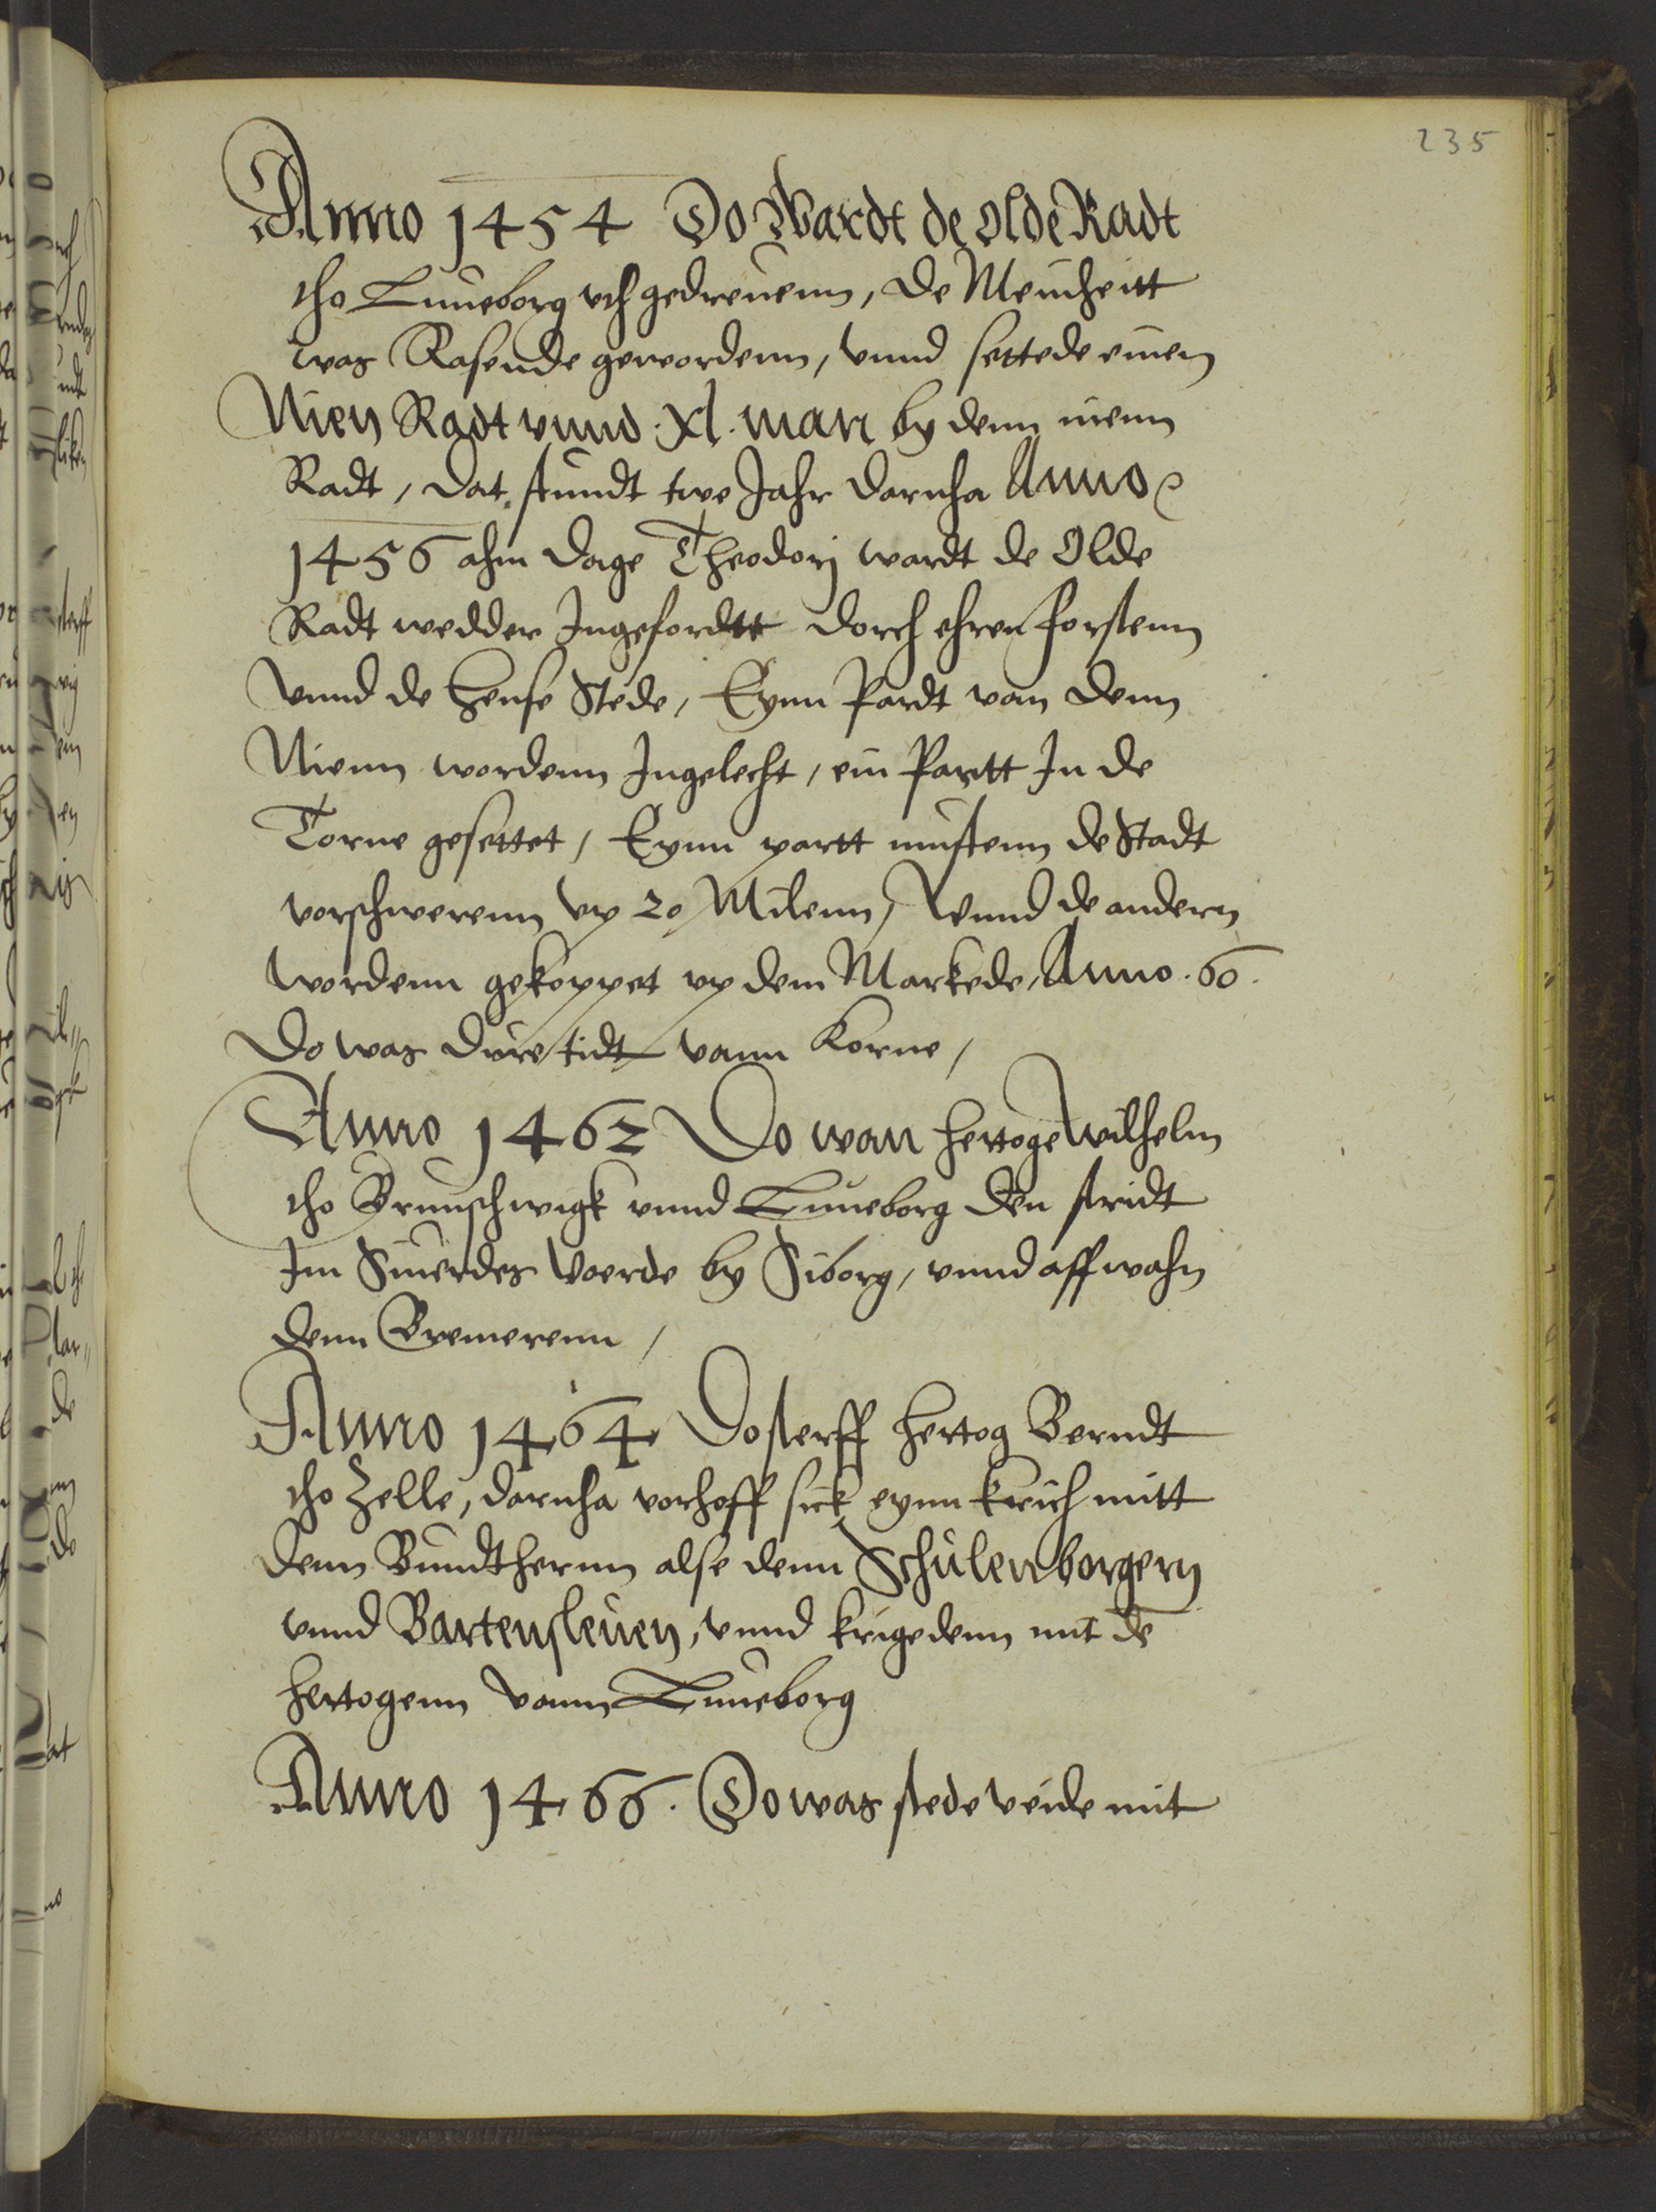 235
Anno 1454 Do Wardt de olde Radt
tho Luneborg uth gedreuenn, de Menheitt
was Rasende gewordenn, vnnd settede einen
Nien Radt vnnd .xl. man by denn nienn
Radt, dat stundt twe Jahr darnha Anno
1456 ahm dage Theodorj wardt de Olde
Radt wedder Ingefordtt dorch ehren forstenn
vnnd de hense Stede, Eynn Pardt van denn
Nienn wordenn Ingelecht, ein Partt In de
Torne gesettet, Eynn partt mustenn de Stadt
vorschwerenn vp 20 Milenn, Vnnd de andern
wordenn gekoppet vp dem Markede, Anno .60.
Do was dure tidt vann Korne,
Anno 1462 Do wan hertoge Wilhelm
tho Brunschwigk vnnd Luneborg den stridt
Im Siuerdes Voerde by Siborg, vnnd aff wahn
denn Bremerenn,
Anno 1464 Do sterff hertog Berndt
tho Zelle, darnha vorhoff sick eynn krich mitt
denn Bundthernn alse denn Schulenborgern
vnnd Bartensleuen, vnnd krigedenn mit de
hertogenn vann Luneborg
Anno 1466. Do was stede veide mit